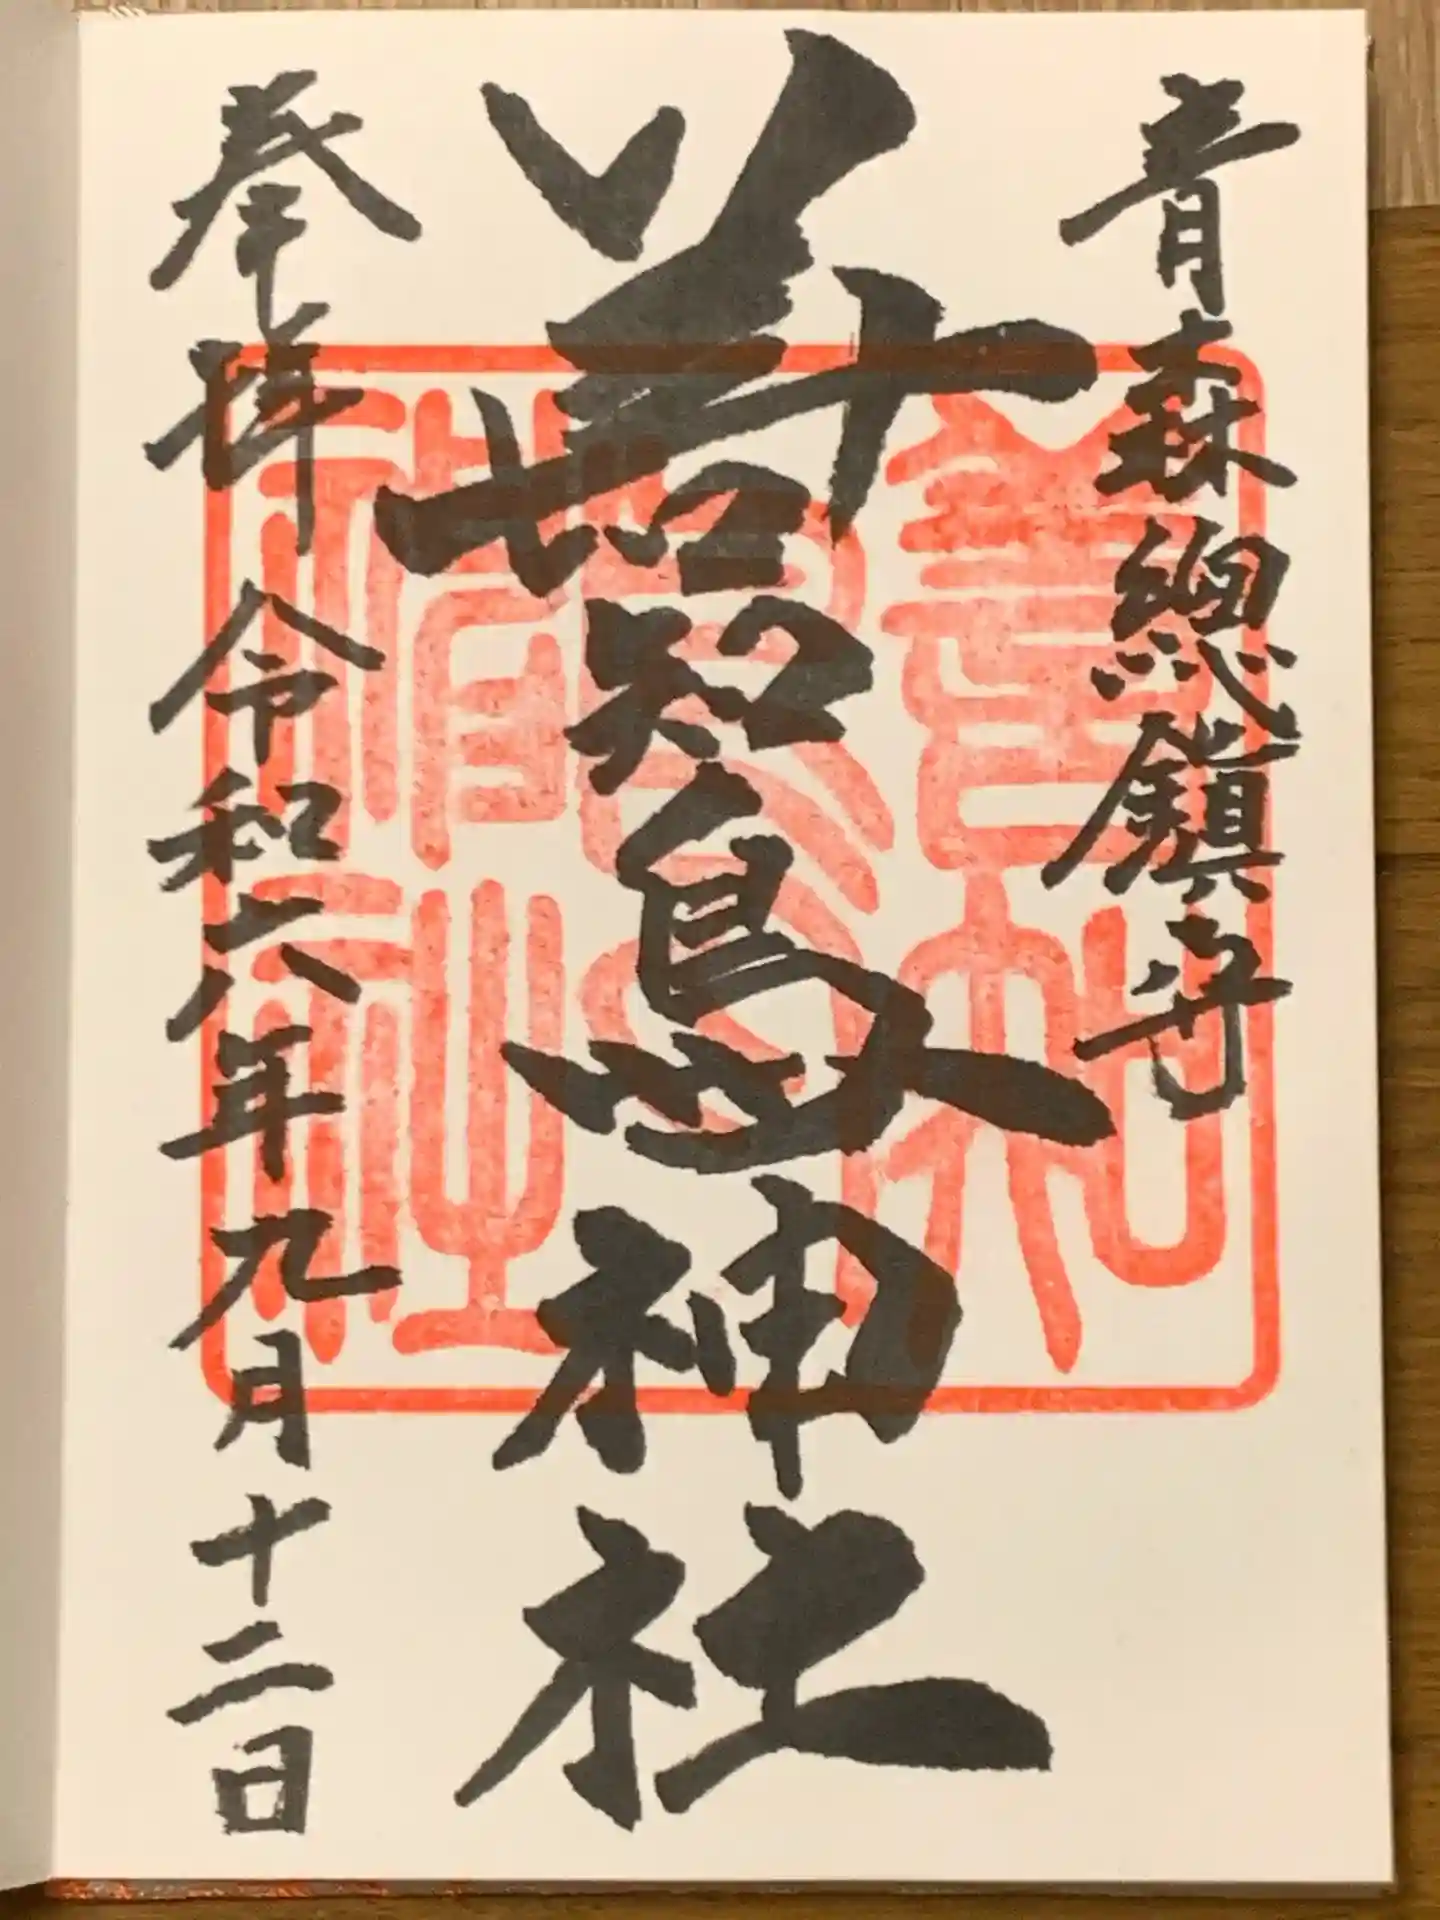 青森總鎮守
善知鳥神社
奉拝 令和六年九月十二日
善知
鳥神社